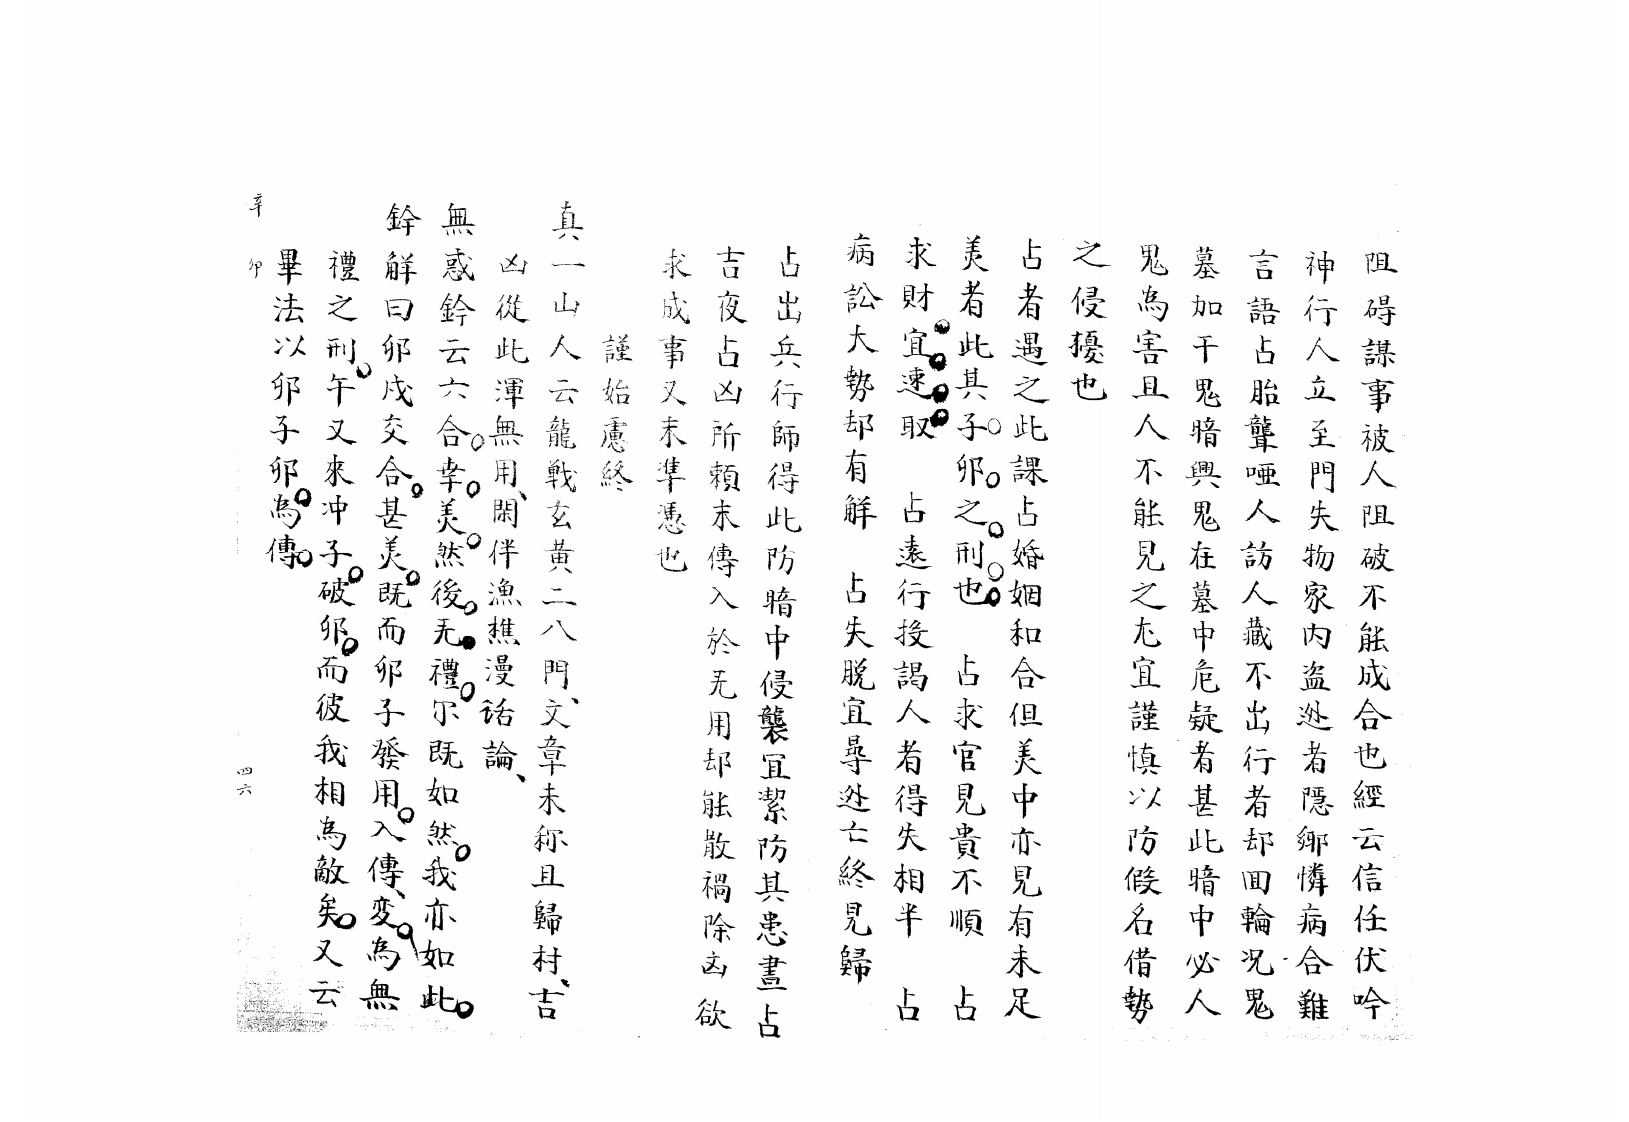 阻碍謀事被人阻破不能成合也經云信任伏吟
神行人立至門失物家内盗迯者隱鄉憐病合難
言語占胎聾啞人訪人藏不出行者却囬輪况鬼
墓加干鬼暗興鬼在墓中危疑者甚此暗中必人
鬼為害且人不能見之尤宜謹慎以防假名借勢
之侵擾也
占者遇之此課占婚姻和合但美中亦見有未足
美者此其子卯之刑也　占求官見貴不順　占
求財宜速取　占遠行投謁人者得失相半　占
病訟大勢却有觧　占失脱宜尋迯亡終見歸
占出兵行師得此防暗中侵襲宜潔防其患晝占
吉夜占凶所賴末傳入於旡用却能散禍除凶欲
求成事又未準憑也
謹始慮終
真一山人云龍戰玄黄二八門、文章未称且歸村、吉
凶從此渾無用、閑伴漁樵漫話論、
無惑鈐云六合幸美然後无禮尔既如然我亦如此
鈐觧曰卯戍交合甚美既而卯子發用入傳、変為無
禮之刑午又來冲子破卯而彼我相為敵矣又云
畢法以卯子卯為傳
辛卯
四六